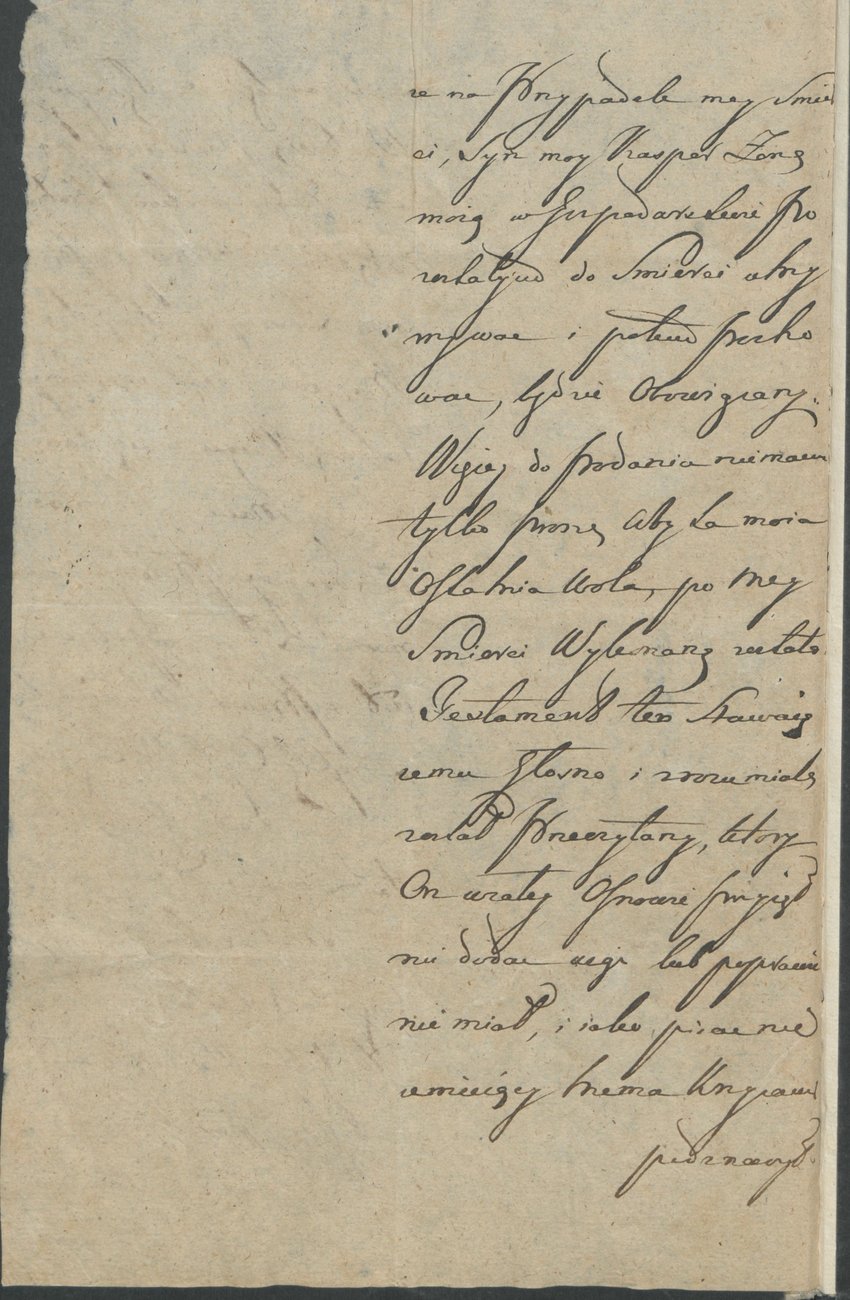 że na Przypadek mey Smier
ci, Syn moy Kasper Żonę
moię w Gospodarstwie Po
zostałym do Smierci utrzy
mywac i potem pocho
wac, będzie Obowiązany.
Więcej do podania niemam
tylko proszę aby ta moia
Ostatnia Wola, po mey
Smierci Wykonaną została
Testament ten Stawaią
cemu głosno i zrozumiale
został Przeczytany, ktory
On w całey Osnowie przyiął
nic dodac czego lub poprawic
nie miał, i iako pisac nie
umieiący trzema Krzyzami
podznaczył.